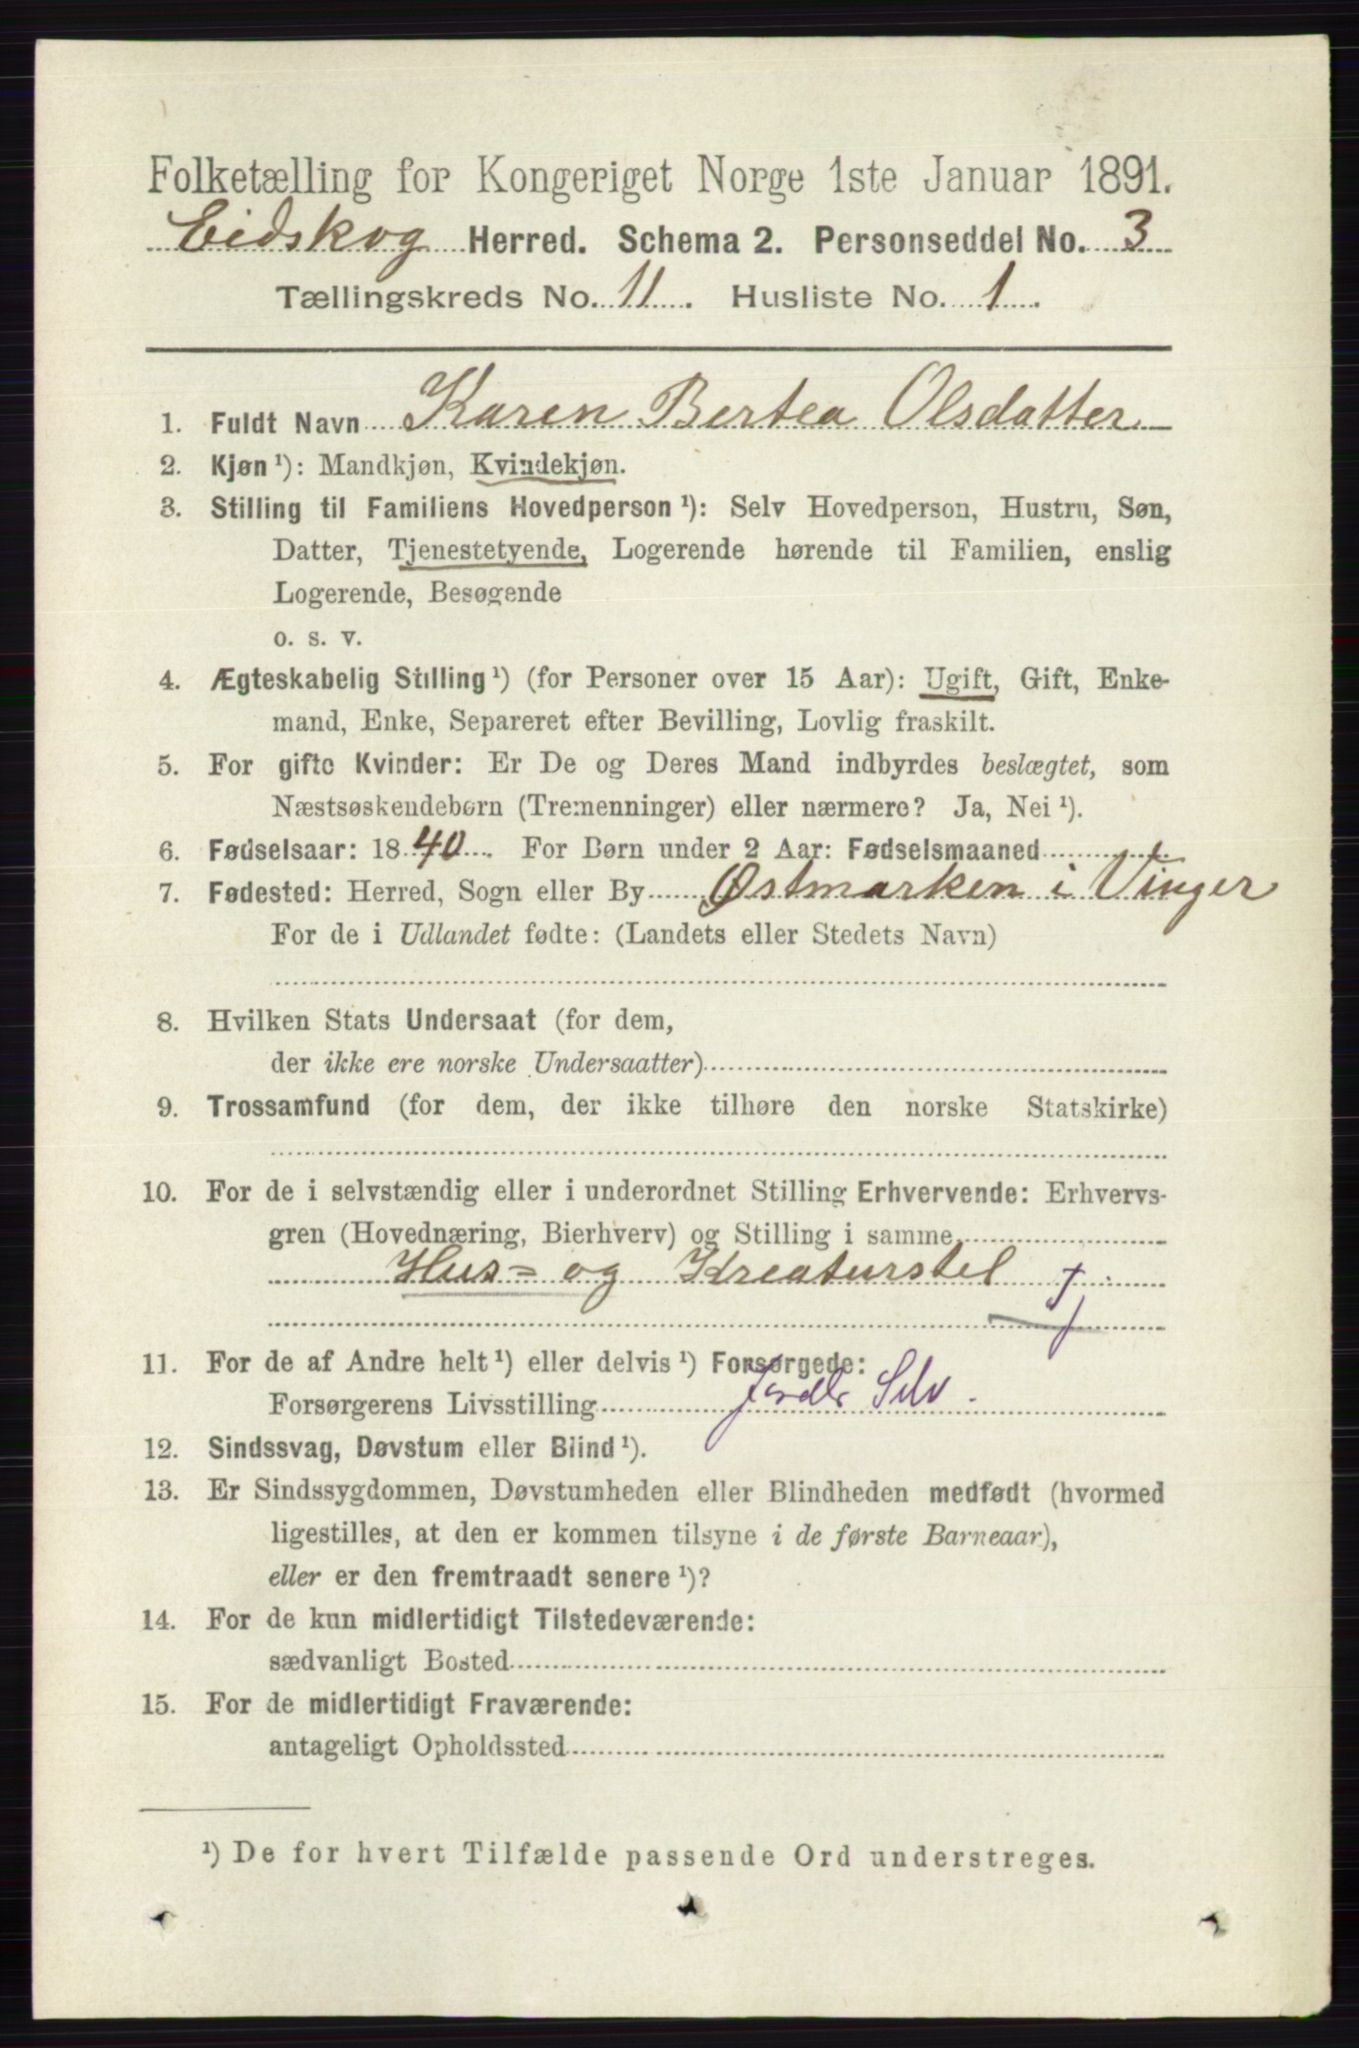 Folketælling for Kongeriget Norge 1ste Januar 1891.
Eidskog Herred. Schema 2. Personseddel No. 3
Tællingskreds No. 11. Husliste No. 1.
1. Fuldt Navn Karen Bertea Olsdatter
2. Kjøn ¹): Mandkjøn, Kvindekjøn.
3. Stilling til Familiens Hovedperson ¹): Selv Hovedperson, Hustru, Søn,
Datter, Tjenestetyende, Logerende hørende til Familien, enslig
Logerende, Besøgende
o. s. v.
4. Ægteskabelig Stilling ¹) (for Personer over 15 Aar): Ugift, Gift, Enke-
mand, Enke, Separeret efter Bevilling, Lovlig fraskilt.
5. For gifte Kvinder: Er De og Deres Mand indbyrdes beslægtet, som
Næstsøskendebørn (Tremenninger) eller nærmere? Ja, Nei ¹).
6. Fødselsaar: 1840. For Børn under 2 Aar: Fødselsmaaned
7. Fødested: Herred, Sogn eller By Østmarken i Vinger
For de i Udlandet fødte: (Landets eller Stedets Navn)
8. Hvilken Stats Undersaat (for dem,
der ikke ere norske Undersaatter)
9. Trossamfund (for dem, der ikke tilhøre den norske Statskirke)
10. For de i selvstændig eller i underordnet Stilling Erhvervende: Erhvervs-
gren (Hovednæring, Bierhverv) og Stilling i samme
Hus- og Kreaturstel
11. For de af Andre helt ¹) eller delvis ¹) Forsørgede:
Forsørgerens Livsstilling Selv.
12. Sindssvag, Døvstum eller Blind ¹).
13. Er Sindssygdommen, Døvstumheden eller Blindheden medfødt (hvormed
ligestilles, at den er kommen tilsyne i de første Barneaar),
eller er den fremtraadt senere ¹)?
14. For de kun midlertidigt Tilstedeværende:
sædvanligt Bosted
15. For de midlertidigt Fraværende:
antageligt Opholdssted
¹) De for hvert Tilfælde passende Ord understreges.